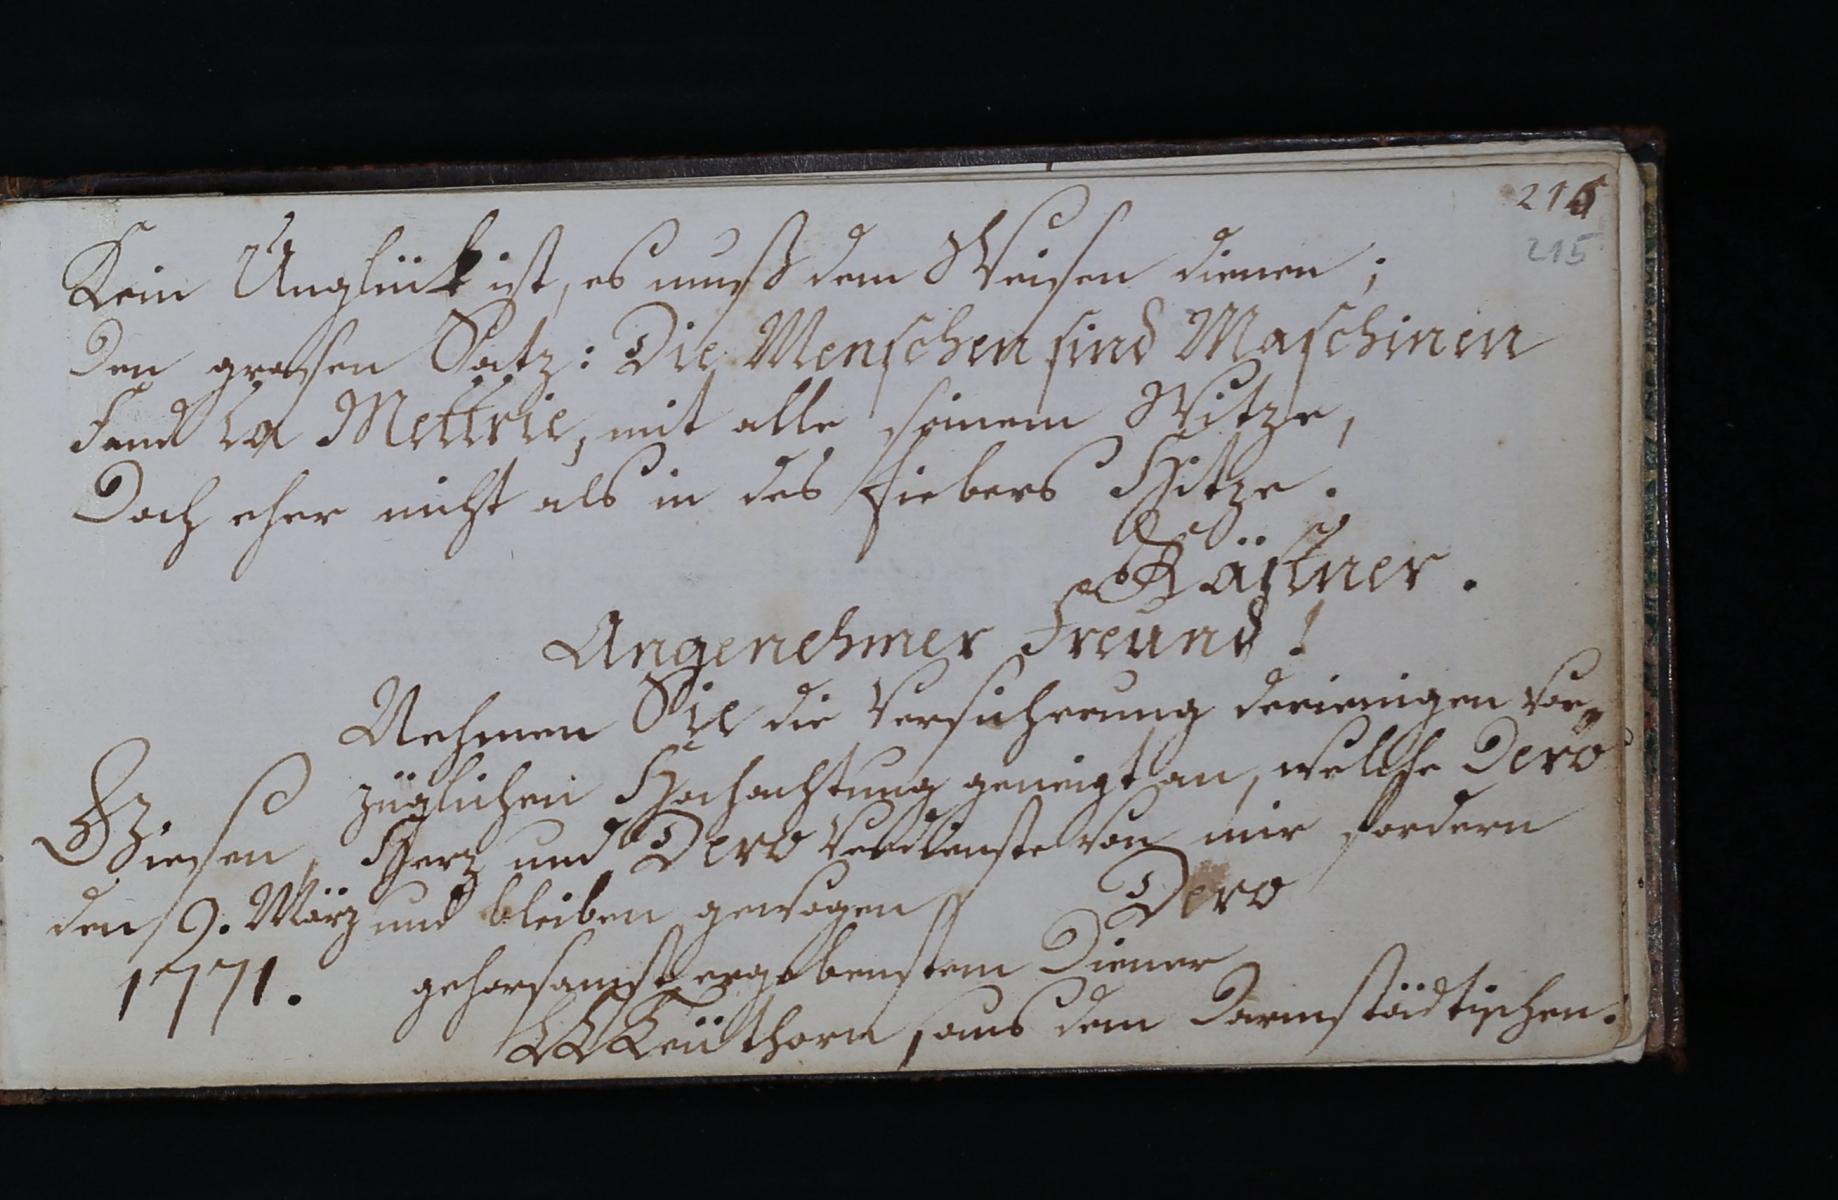 216
215
Kein Unglük ist, es muß dem Weisen dienen;
Den grosen Satz: Die Menschen sind Maschinen
Fand La Mettrie, mit alle seinem Witze,
Doch eher nicht als in des Fiebers Hitze.
Kästner.
Angenehmer Freund!
Nehmen Sie die Versicherung derienigen vor-
züglichen Hochachtung geneigt an, welche Dero
Herz und Dero Verdienste von mir fordern
und bleiben gewogen
Dero
gehorsamst ergebenstem Diener
aus dem Darmstädtischen.
Giesen,
den 9. März
1771.